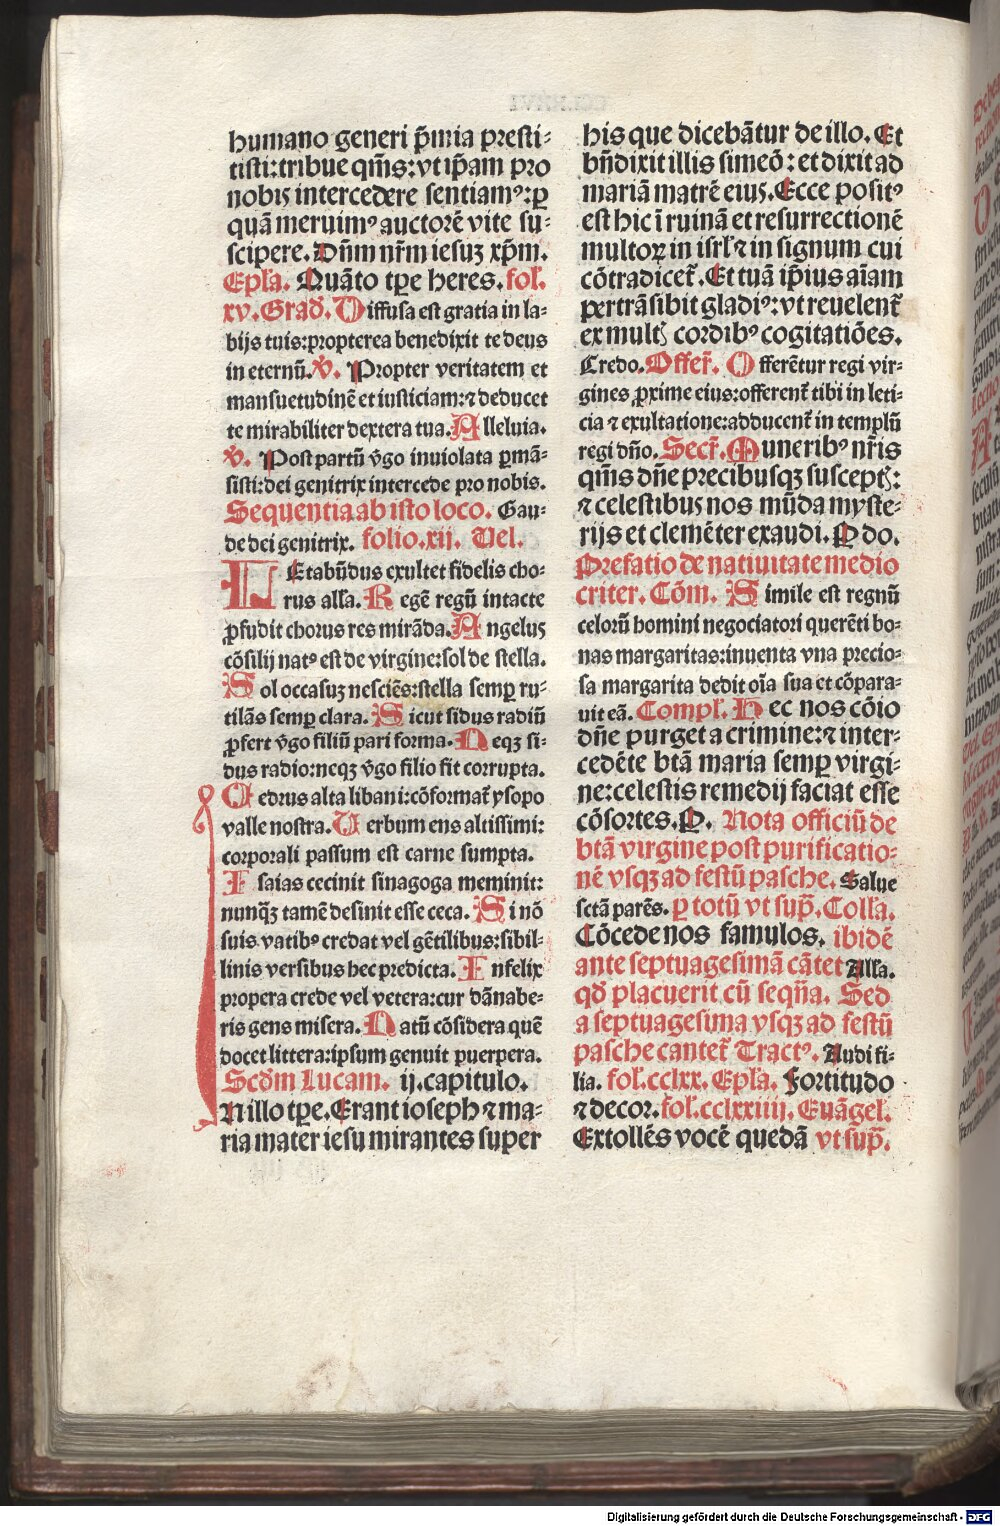 humano generi p̄mia presti-
tisti: tribue qm̄s: vt ip̄am pro
nobis intercedere sentiamꝰ: ꝑ
quā meruimꝰ auctorē vite su-
scipere. Dn̄m nr̄m iesuꝫ xp̄m.
Epl̄a. Quāto tꝑe heres. fol̄.
xv. Grad̄. Diffusa est gratia in la-
bijs tuis: propterea benedixit te deus
in eternū. v̄. Propter veritatem et
mansuetudinē et iusticiam: ⁊ deducet
te mirabiliter dextera tua. Alleluia.
v̄. Post partū v̄go inuiolata ꝑmā-
sisti: dei genitrix intercede pro nobis.
Sequentia ab isto loco. Gau-
de dei genitrix. folio. xij. Uel.
LEtabūdus exultet fidelis cho-
rus all̄a. Regē regū intacte
ꝓfudit chorus res mirāda. Angelus
cōsilij natꝰ est de virgine: sol de stella.
Sol occasuꝫ nesciēs: stella semꝑ ru-
tilās semꝑ clara. Sicut sidus radiū
ꝓfert v̄go filiū pari forma. Neqꝫ si-
dus radio: neqꝫ v̄go filio fit corrupta.
Cedrus alta libani: cōformat̄ ysopo
valle nostra. Uerbum ens altissimi:
corporali passum est carne sumpta.
Isaias cecinit sinagoga meminit:
nunqꝫ tamē desinit esse ceca. Si nō
suis vatibꝰ credat vel gētilibus: sibil-
linis versibus hec predicta. Infelix
propera crede vel vetera: cur dānabe-
ris gens misera. Natū cōsidera quē
docet littera: ipsum genuit puerpera.
Scd̄m Lucam. ij. capitulo.
In illo tꝑe. Erant ioseph ⁊ ma-
ria mater iesu mirantes super
his que dicebātur de illo. Et
bn̄dixit illis simeō: et dixit ad
mariā matrē eius. Ecce positꝰ
est hic ī ruinā et resurrectionē
multoꝝ in isrl̄ ⁊ in signum cui
cōtradicet̄. Et tuā ip̄ius aīam
pertrāsibit gladiꝰ: vt reuelent̄
ex multꝭ cordibꝰ cogitatiōes.
Credo. Offer̄. Offerētur regi vir-
gines ꝓxime eius: offerent̄ tibi in leti-
cia ⁊ exultatione: adducent̄ in templū
regi dn̄o. Secr̄. Muneribꝰ nr̄is
qm̄s dn̄e precibusqꝫ susceptꝭ:
⁊ celestibus nos mūda myste-
rijs et clemēter exaudi. P do.
Prefatio de natiuitate medio
criter. Cōm. Simile est regnū
celorū homini negociatori querēti bo-
nas margaritas: inuenta vna precio-
sa margarita dedit oīa sua et cōpara-
uit eā. Compl̄. Hec nos cōio
dn̄e purget a crimine: ⁊ inter-
cedēte btā maria semꝑ virgi-
ne: celestis remedij faciat esse
cōsortes. P. Nota officiū de
btā virgine post purificatio-
nē vsqꝫ ad festū pasche. Salue
sctā parēs. ꝑ totū vt sup̄. Coll̄a.
Cōcede nos famulos. ibidē
ante septuagesimā cātet All̄a.
qd̄ placuerit cū seqn̄a. Sed
a septuagesima vsqꝫ ad festū
pasche cantet̄ Tractꝰ. Audi fi-
lia. fol̄. cclxx. Epl̄a. Fortitudo
⁊ decor. fol̄. cclxxiiij. Euāgel̄.
Extollēs vocē quedā vt sup̄.
Digitalisierung gefördert durch die Deutsche Forschungsgemeinschaft - DFG